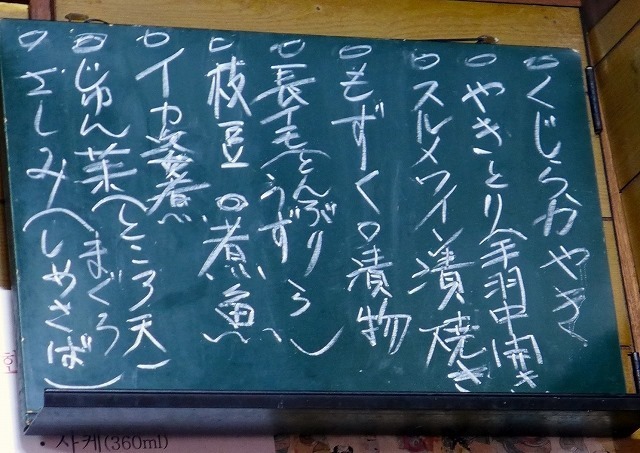 ○くじらかやき
○やきとり(手羽中開き
○スルメワイン漬焼き
○もずく○漬物
○長イモ(とんぶり
うずら)
○枝豆 ○煮魚
○イカ姿煮
○じゅん菜(ところ天)
○さしみ(まぐろ
しめさば)
• 사케(360ml)